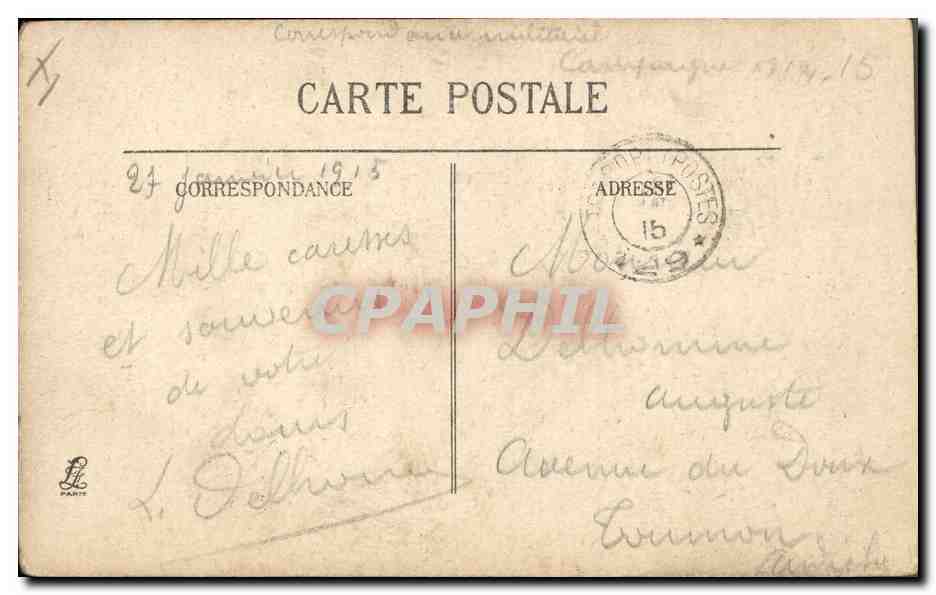 Correspondance militaire
Campagne 1914-15
CARTE POSTALE
27 Janvier 1915
CORRESPONDANCE
ADRESSE
POSTES
15
Mille caresses
et souvenirs
de votre
Louis
L. Delhomme
Monsieur
Delhomme
Auguste
Avenue du Doux
Tournon
Ardèche
CPAPHIL
LL
PARIS